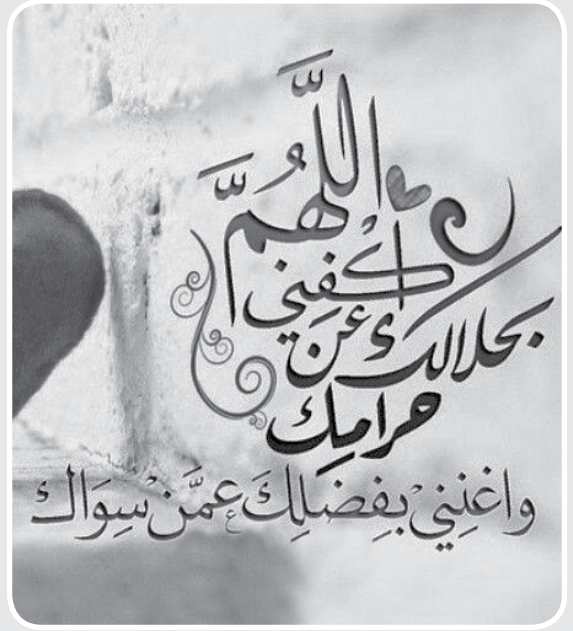 اللَّهُمَّ
اكْفِني
بحلالك عن
حرامِك
واغنِني بِفِضلِكَ عمَّنْ سِوَاك